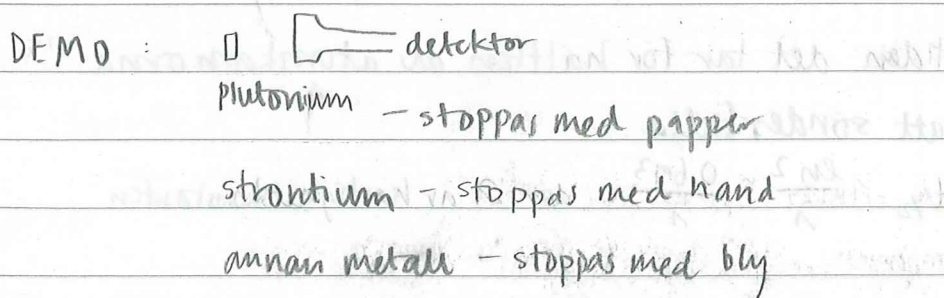 DEMO : detektor
plutonium - stoppas med papper
strontium - stoppas med hand
annan metall - stoppas med bly